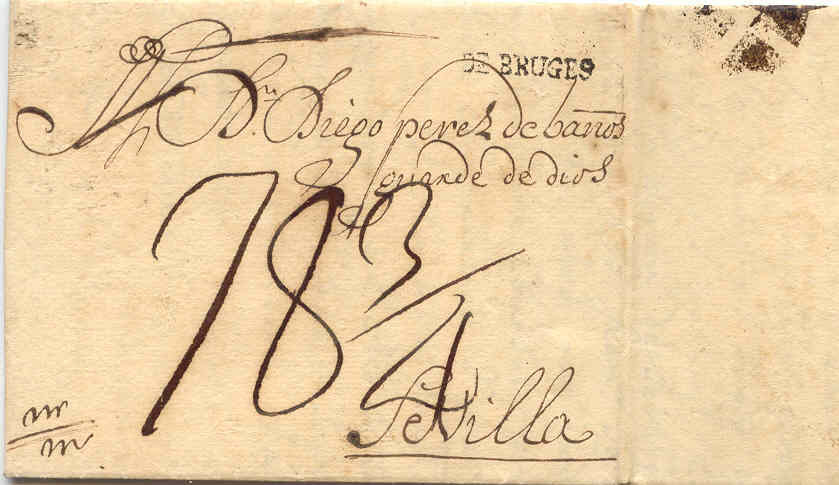 DE BRUGES
Dn. Diego perez de baños
guarde de dios
78 3/4
Sevilla